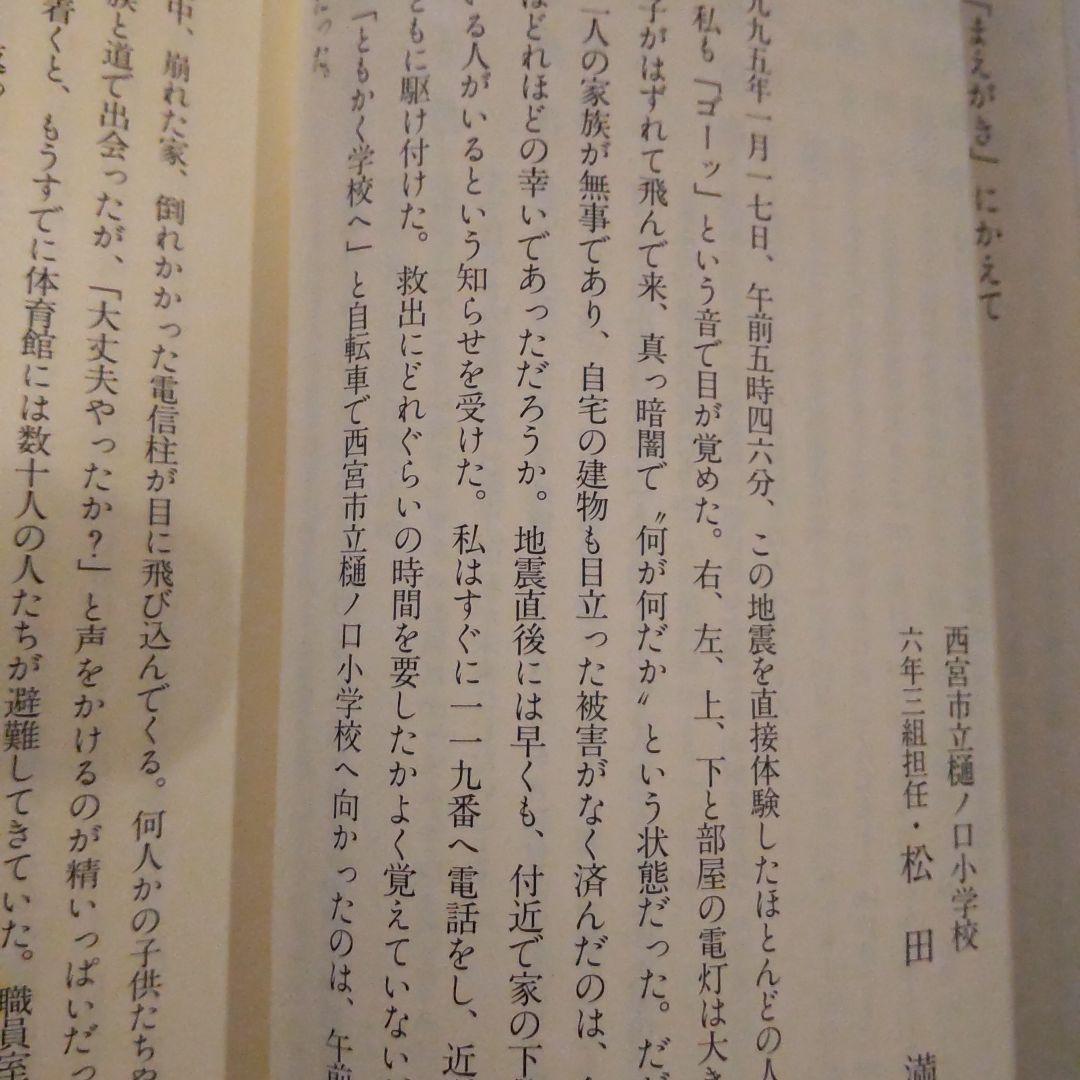 「まえがき」にかえて
西宮市立樋ノ口小学校
六年三組担任・松田 満
九九五年一月一七日、午前五時四六分、この地震を直接体験したほとんどの人
私も「ゴーッ」という音で目が覚めた。右、左、上、下と部屋の電灯は大き
子がはずれて飛んで来、真っ暗闇で〝何が何だか〟という状態だった。だが
人の家族が無事であり、自宅の建物も目立った被害がなく済んだのは、
ほどれほどの幸いであっただろうか。地震直後には早くも、付近で家の下
いる人がいるという知らせを受けた。私はすぐに一一九番へ電話をし、近
ともに駆け付けた。救出にどれぐらいの時間を要したかよく覚えていない
「ともかく学校へ」と自転車で西宮市立樋ノ口小学校へ向かったのは、午前
だった。
中、崩れた家、倒れかかった電信柱が目に飛び込んでくる。何人かの子供たちや
族と道で出会ったが、「大丈夫やったか?」と声をかけるのが精いっぱいだっ
着くと、もうすでに体育館には数十人の人たちが避難してきていた。職員室